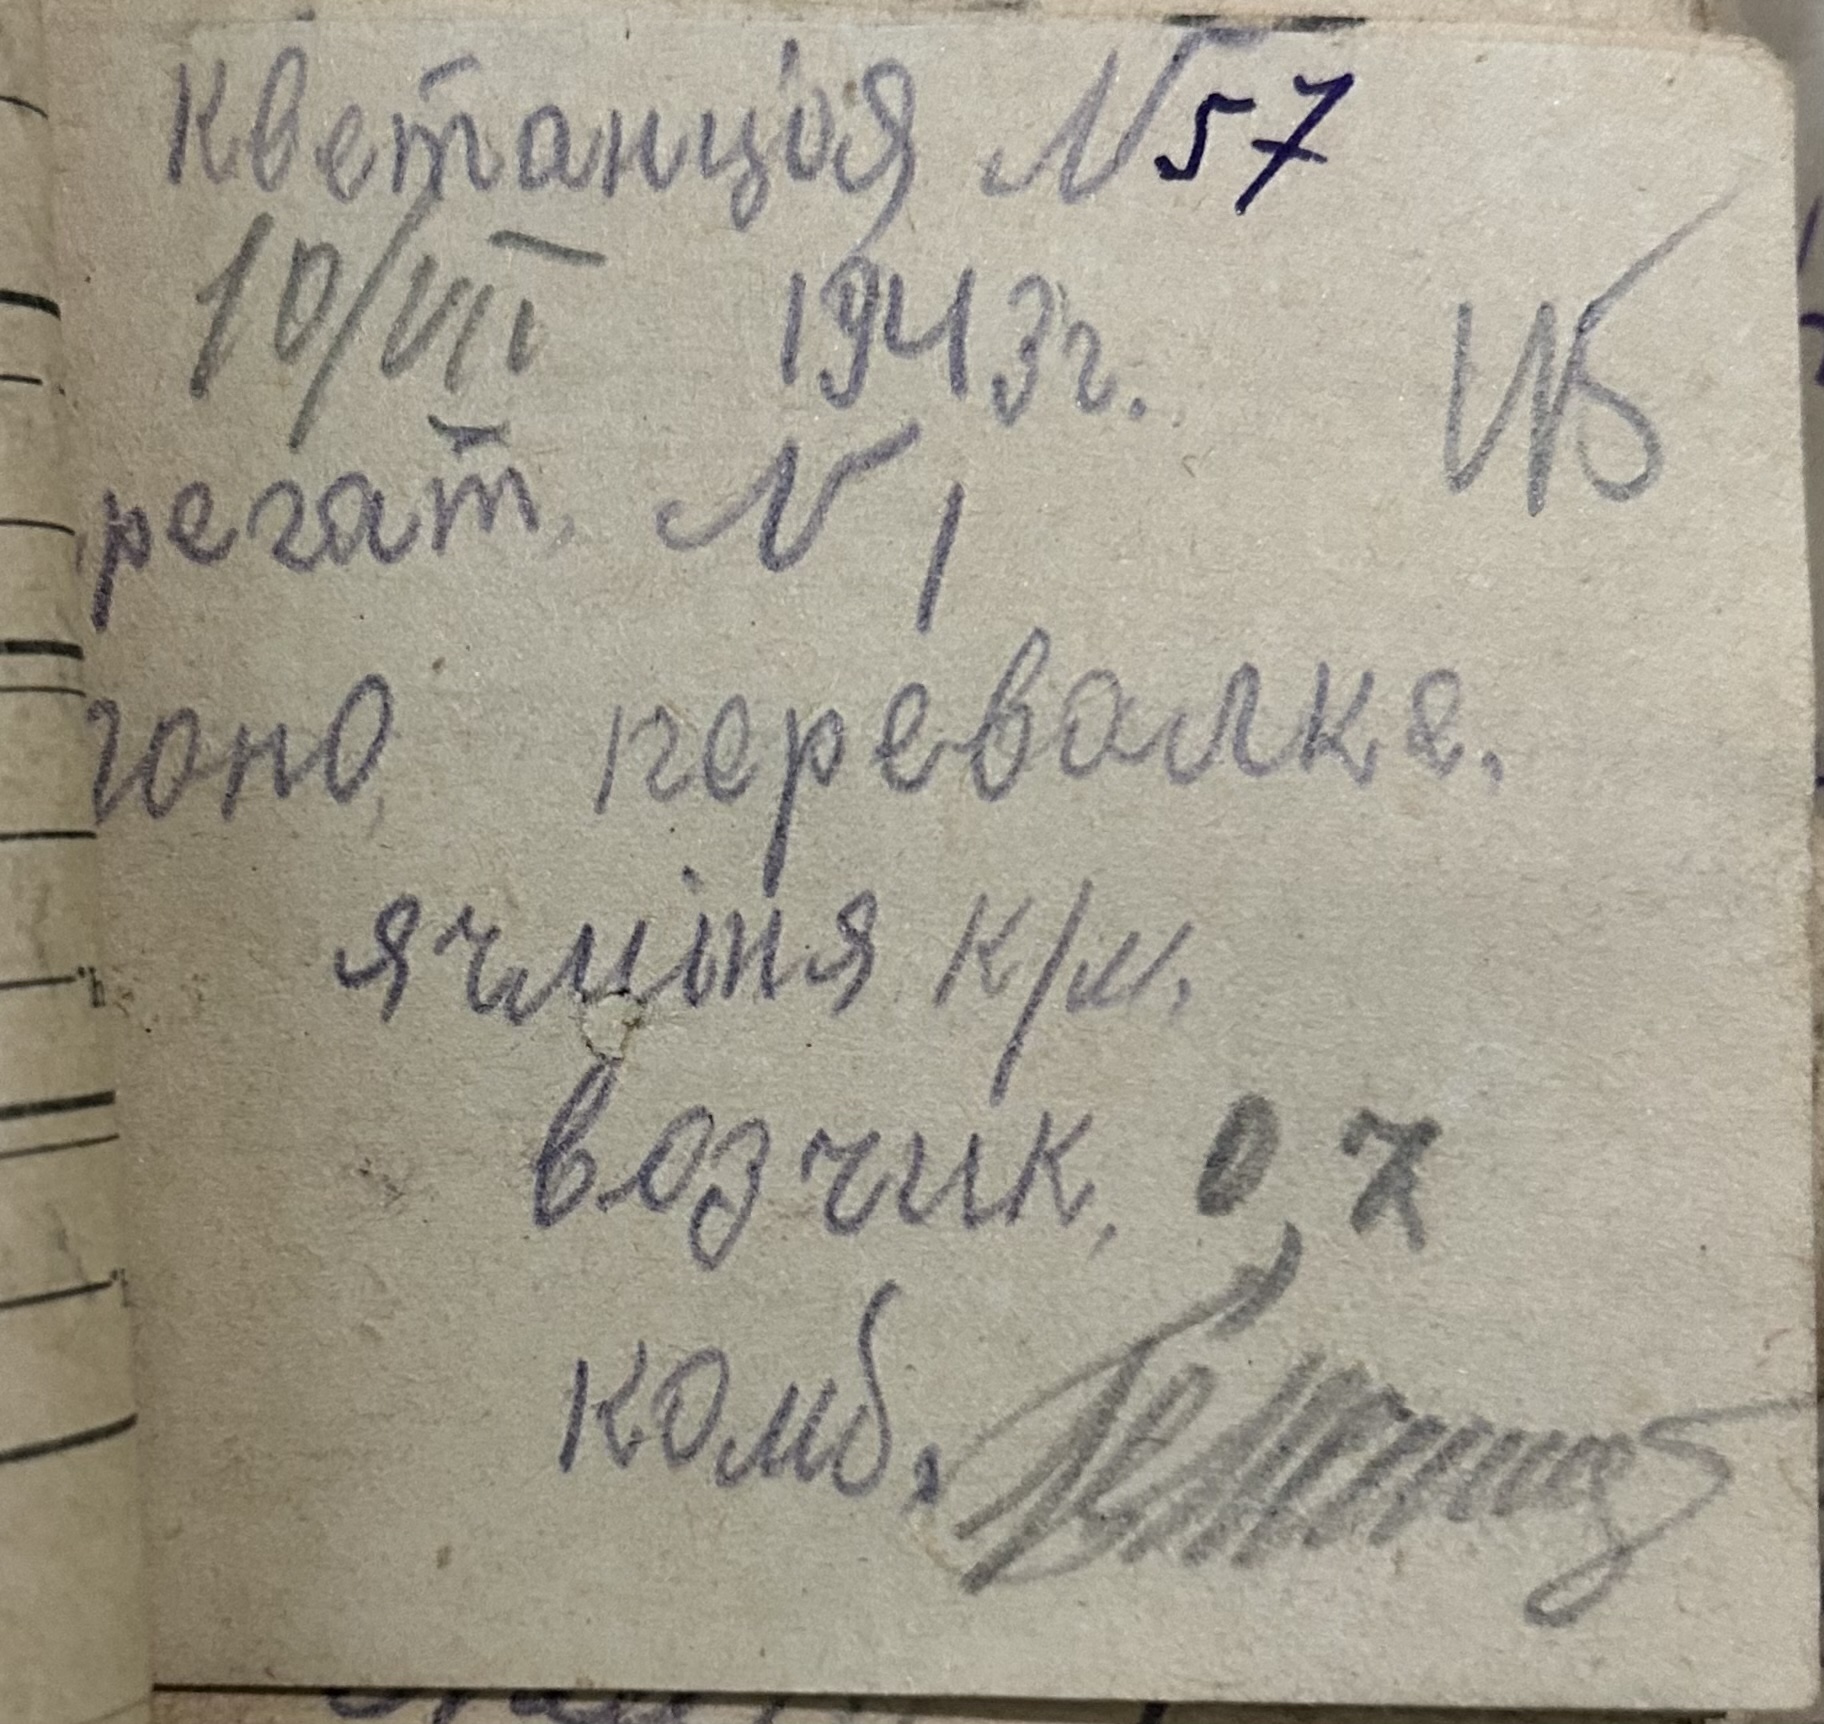 Кветанция N 57
10/VII 1943г.
регат. N 1
гоно, перевалке.
ячміня к/м.
возчик, 0,7
комб.